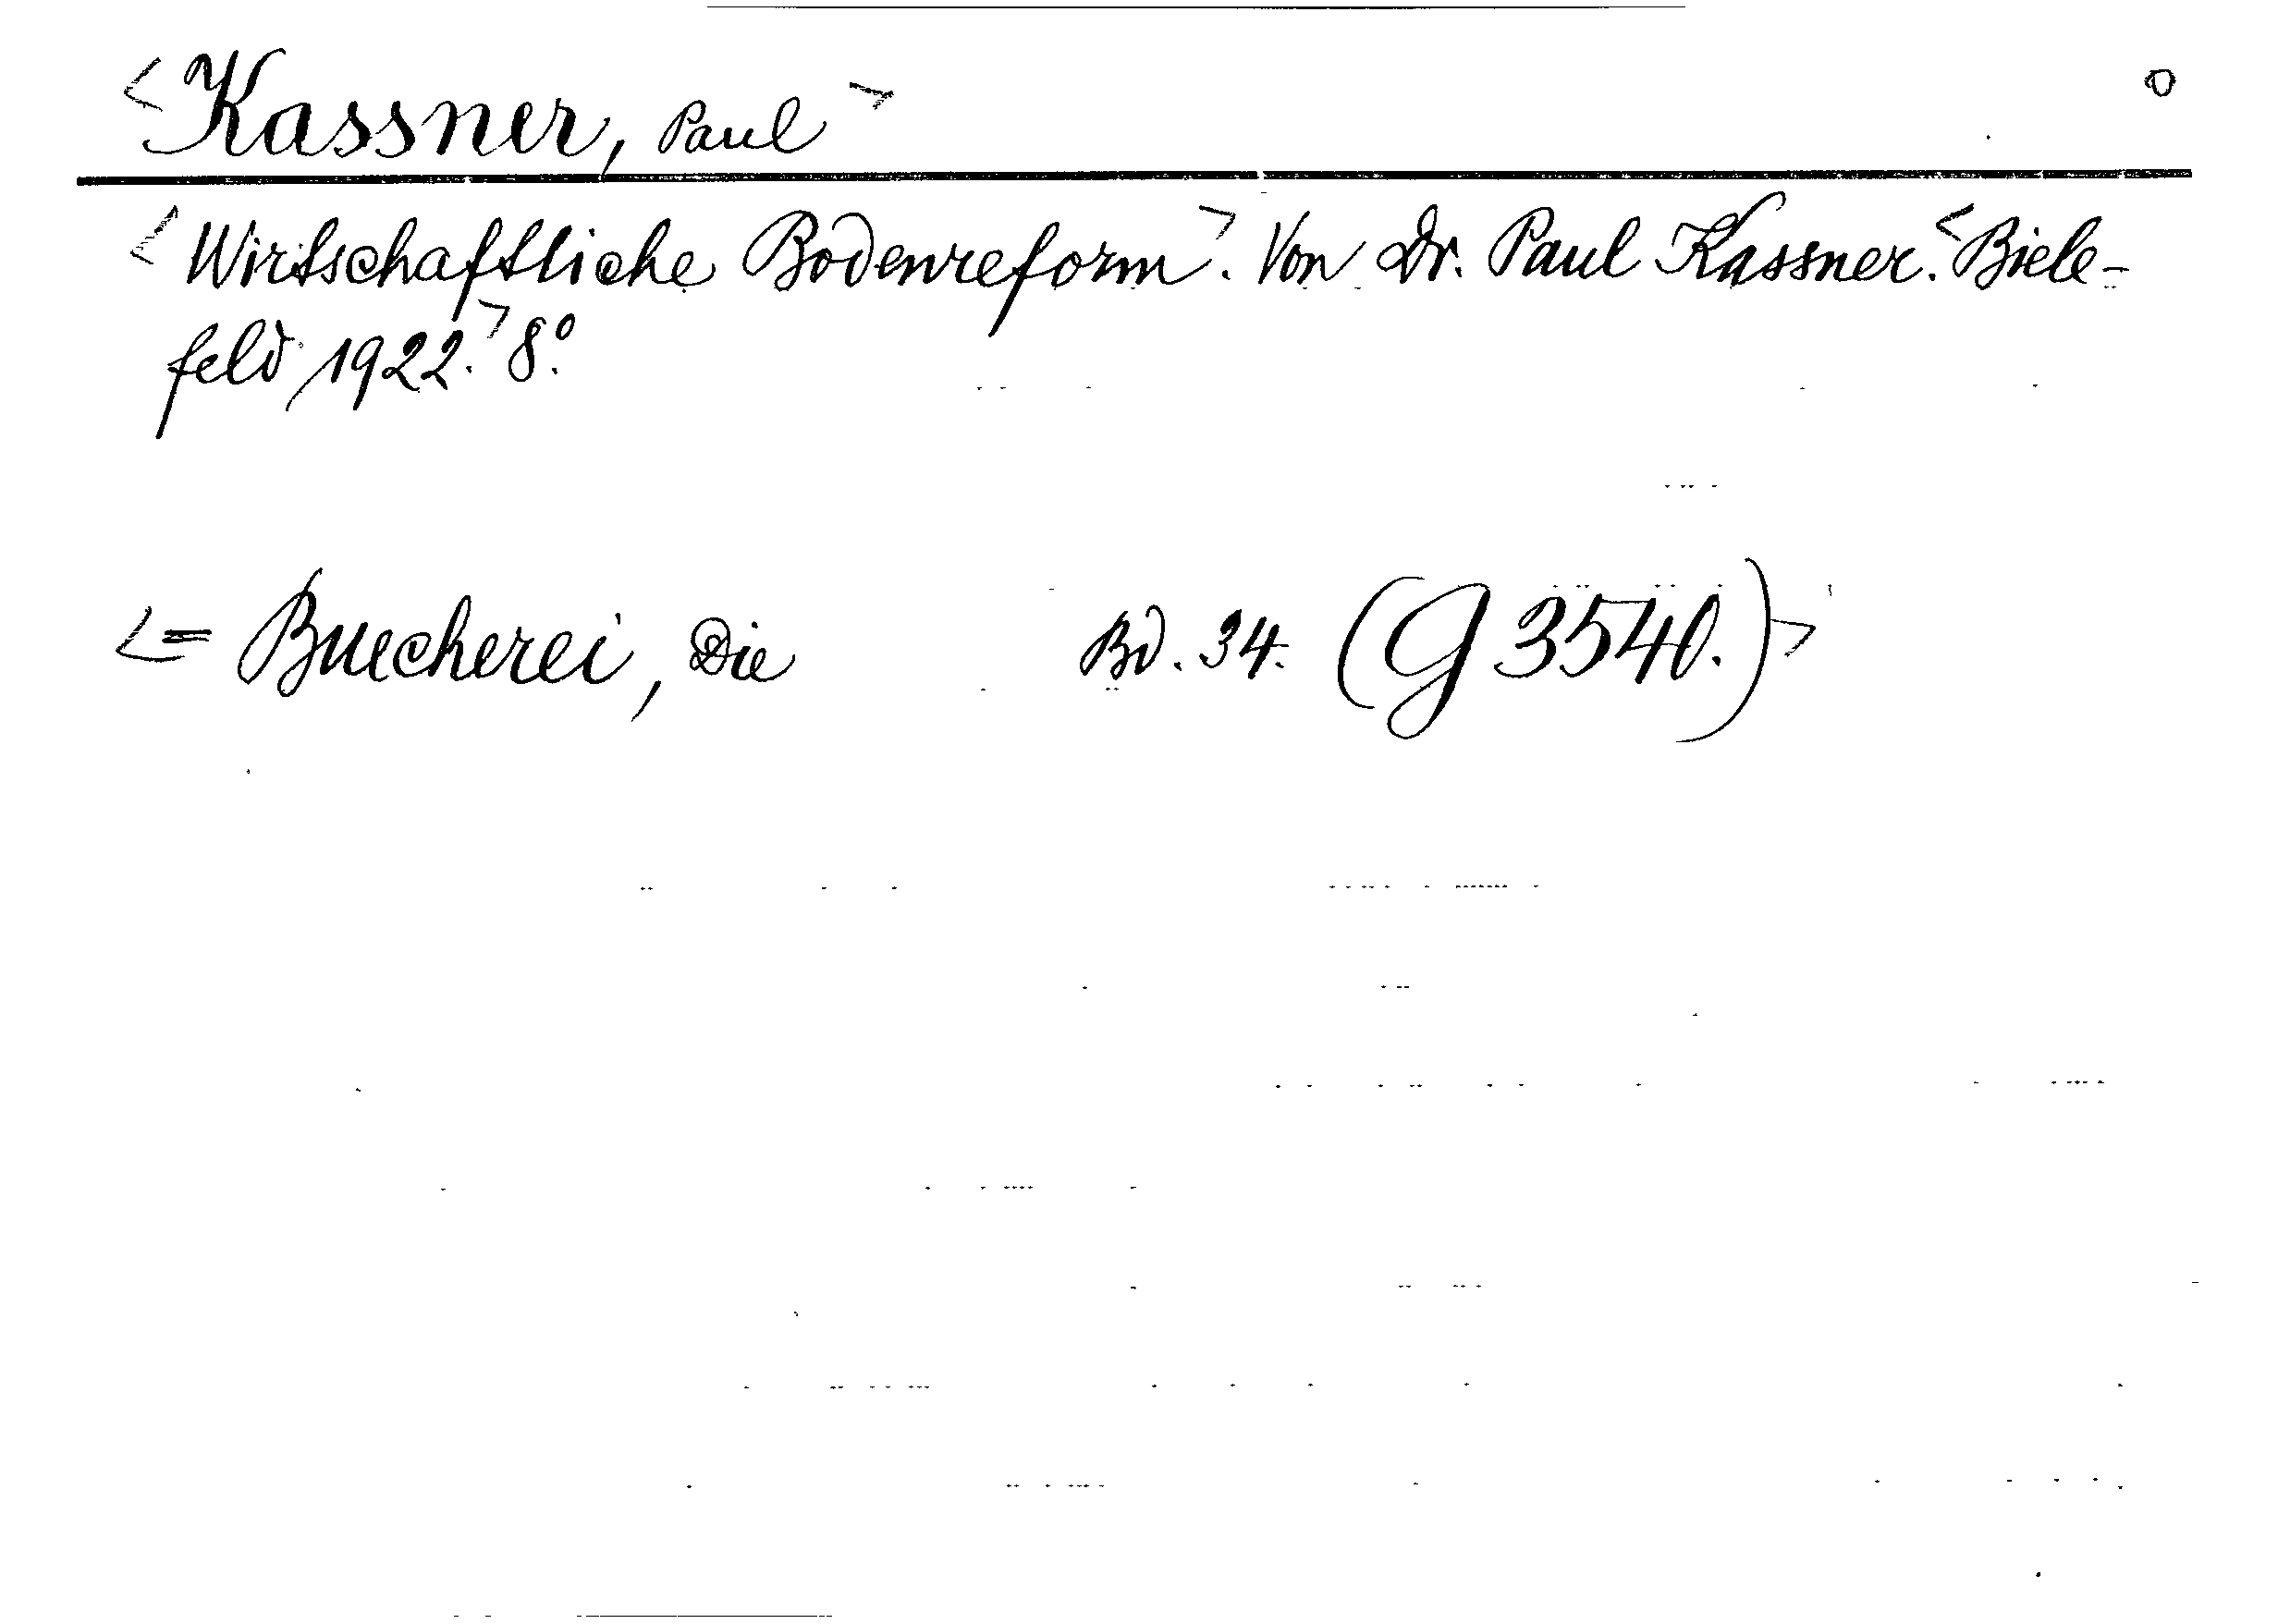 <Kassner, Paul> 0
<Wirtschaftliche Bodenreform>. Von Dr. Paul Kassner. <Biele-
feld 1922.> 8°.
<= Buecherei, Die Bd. 34. (G 3540.)>